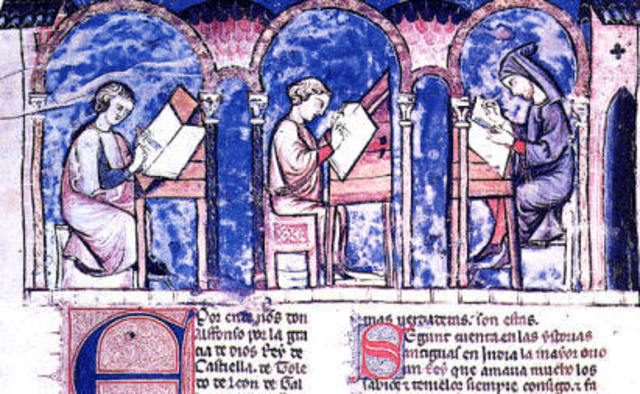 E Por ende nos don
alffonso por la gra
cia de dios Rey de
Castiella. de Tole
do de Leon de Gal
mas uerdaderas. son estas.
Segunt cuenta en las ystorias
antiguas en India la mayor ouo
un Rey que amaua mucho los
sabios & tenielos siempre consigo. & fa